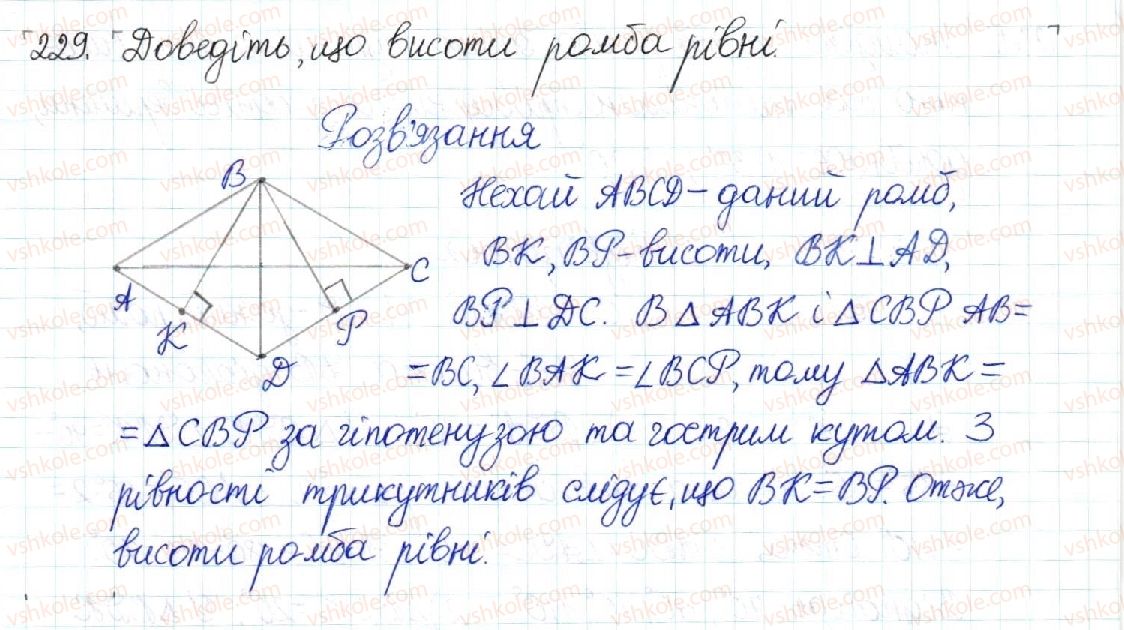 229. Доведіть, що висоти ромба рівні.
Розв'язання
B
A
K
D
P
C
Нехай ABCD – даний ромб,
BK, BP – висоти, BK⊥AD,
BP⊥DC. В △ABK і △CBP AB=
=BC, ∠BAK=∠BCP, тому △ABK=
=△CBP за гіпотенузою та гострим кутом. З
рівності трикутників слідує, що BK=BP. Отже,
висоти ромба рівні.